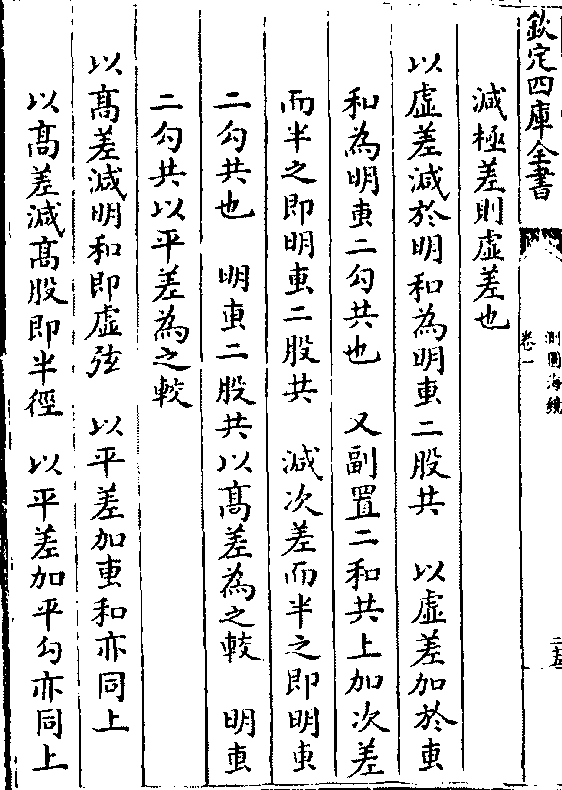 欽定四庫全書
測圓海鏡
卷一
二十五
減極差則虛差也
以虛差減於明和為明叀二股共　以虛差加於叀
和為明叀二勾共也　又副置二和共上加次差
而半之即明叀二股共　減次差而半之即明叀
二勾共也　明叀二股共以髙差為之較　明叀
二勾共以平差為之較
以髙差減明和即虛弦　以平差加叀和亦同上
以髙差減髙股即半徑　以平差加平勾亦同上